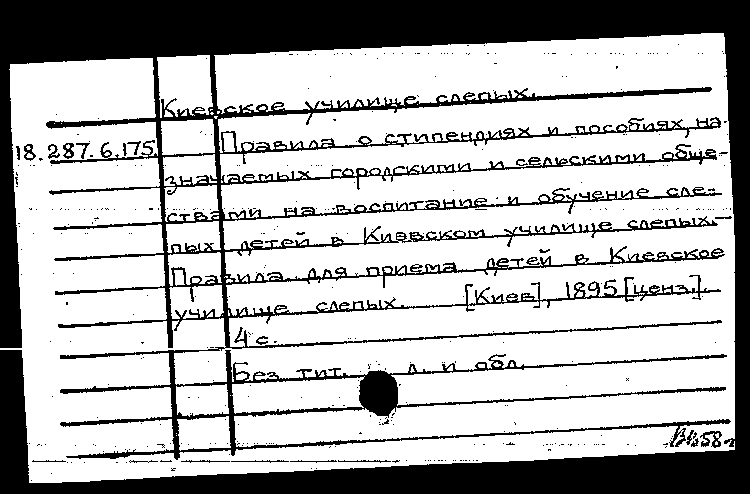 Киевское училище слепых.
18.287.6.175. Правила о стипендиях и пособиях, на-
значаемых городскими и сельскими обще-
ствами на воспитание и обучение сле-
пых детей в Киевском училище слепых.-
Правила для приема детей в Киевское
училище слепых. [Киев], 1895 [ценз.].
4 с.
Без тит. л. и обл.